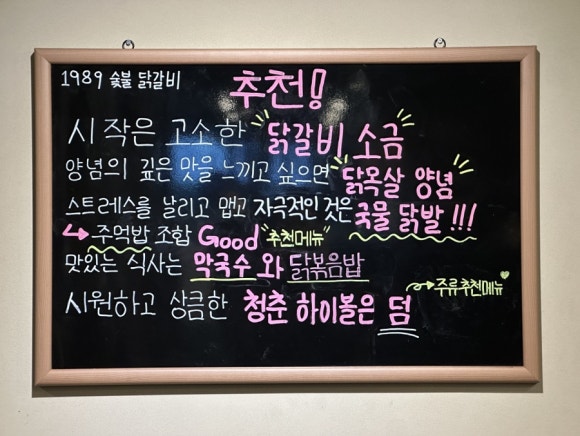 1989 숯불 닭갈비
추천!
시작은 고소한 닭갈비 소금
양념의 깊은 맛을 느끼고 싶으면 닭목살 양념
스트레스를 날리고 맵고 자극적인 것은 국물 닭발 !!!
주먹밥 조합 Good 추천메뉴
맛있는 식사는 막국수 와 닭볶음밥
주류추천메뉴
시원하고 상큼한 청춘 하이볼은 덤